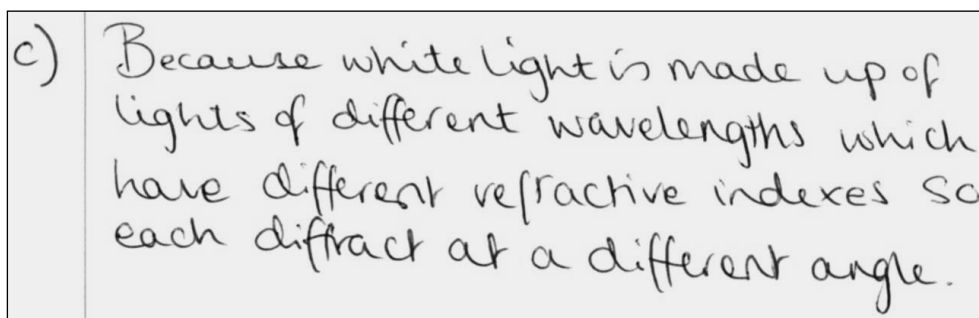 c) Because white light is made up of
lights of different wavelengths which
have different refractive indexes so
each diffract at a different angle.